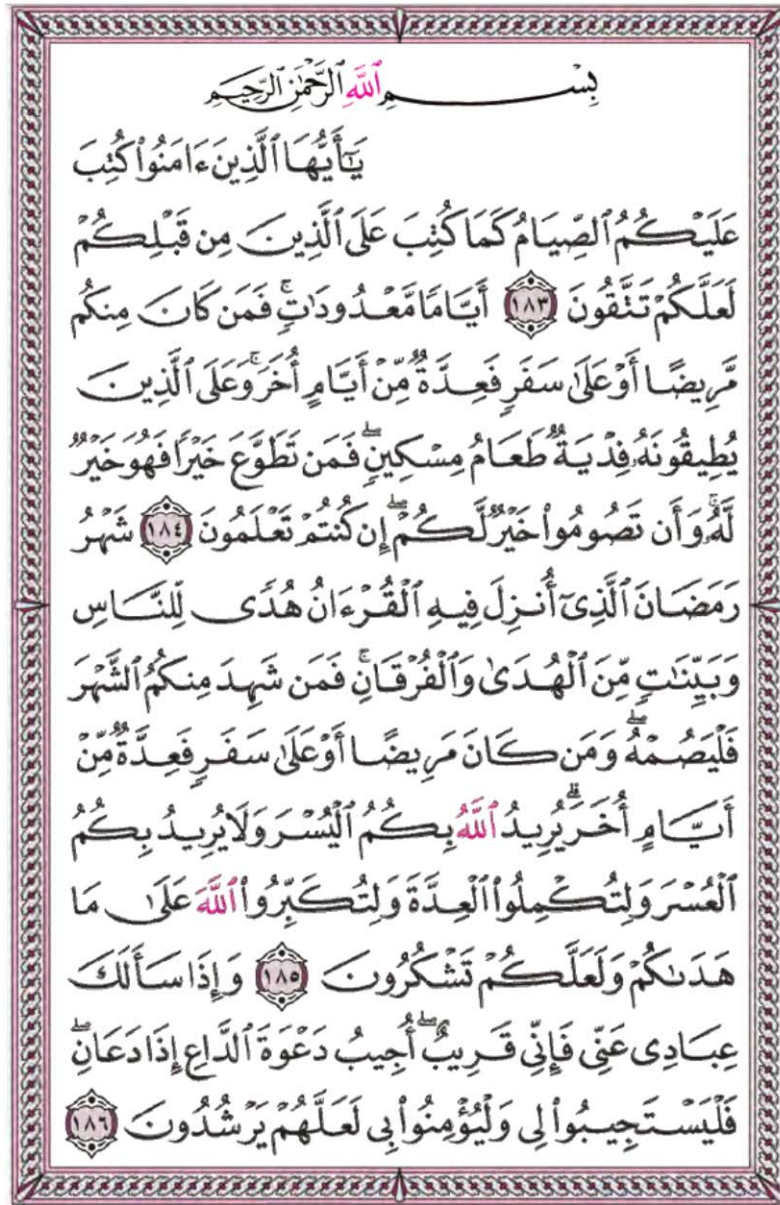 بِسْمِ ٱللَّهِ ٱلرَّحْمَٰنِ ٱلرَّحِيمِ
يَٰٓأَيُّهَا ٱلَّذِينَ ءَامَنُوا۟ كُتِبَ
عَلَيْكُمُ ٱلصِّيَامُ كَمَا كُتِبَ عَلَى ٱلَّذِينَ مِن قَبْلِكُمْ
لَعَلَّكُمْ تَتَّقُونَ ١٨٣ أَيَّامًا مَّعْدُودَٰتٍ ۚ فَمَن كَانَ مِنكُم
مَّرِيضًا أَوْ عَلَىٰ سَفَرٍ فَعِدَّةٌ مِّنْ أَيَّامٍ أُخَرَ ۚ وَعَلَى ٱلَّذِينَ
يُطِيقُونَهُۥ فِدْيَةٌ طَعَامُ مِسْكِينٍ ۖ فَمَن تَطَوَّعَ خَيْرًا فَهُوَ خَيْرٌ
لَّهُۥ ۚ وَأَن تَصُومُوا۟ خَيْرٌ لَّكُمْ ۖ إِن كُنتُمْ تَعْلَمُونَ ١٨٤ شَهْرُ
رَمَضَانَ ٱلَّذِىٓ أُنزِلَ فِيهِ ٱلْقُرْءَانُ هُدًى لِّلنَّاسِ
وَبَيِّنَٰتٍ مِّنَ ٱلْهُدَىٰ وَٱلْفُرْقَانِ ۚ فَمَن شَهِدَ مِنكُمُ ٱلشَّهْرَ
فَلْيَصُمْهُ ۖ وَمَن كَانَ مَرِيضًا أَوْ عَلَىٰ سَفَرٍ فَعِدَّةٌ مِّنْ
أَيَّامٍ أُخَرَ ۗ يُرِيدُ ٱللَّهُ بِكُمُ ٱلْيُسْرَ وَلَا يُرِيدُ بِكُمُ
ٱلْعُسْرَ وَلِتُكْمِلُوا۟ ٱلْعِدَّةَ وَلِتُكَبِّرُوا۟ ٱللَّهَ عَلَىٰ مَا
هَدَىٰكُمْ وَلَعَلَّكُمْ تَشْكُرُونَ ١٨٥ وَإِذَا سَأَلَكَ
عِبَادِى عَنِّى فَإِنِّى قَرِيبٌ ۖ أُجِيبُ دَعْوَةَ ٱلدَّاعِ إِذَا دَعَانِ ۖ
فَلْيَسْتَجِيبُوا۟ لِى وَلْيُؤْمِنُوا۟ بِى لَعَلَّهُمْ يَرْشُدُونَ ١٨٦